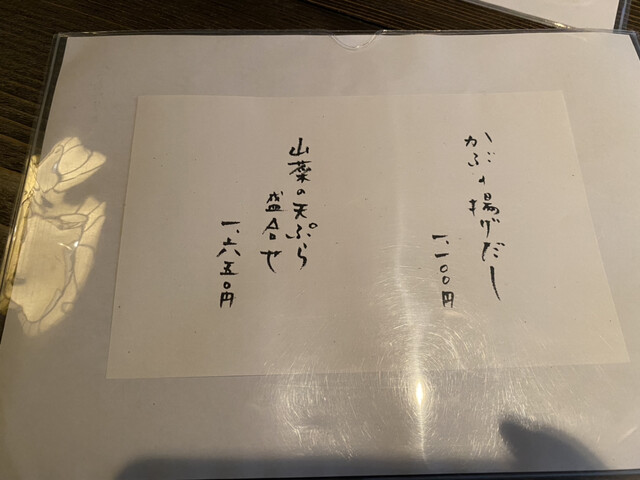 小かぶの揚げだし
一、一〇〇円
山菜の天ぷら
盛合せ
一、六五〇円